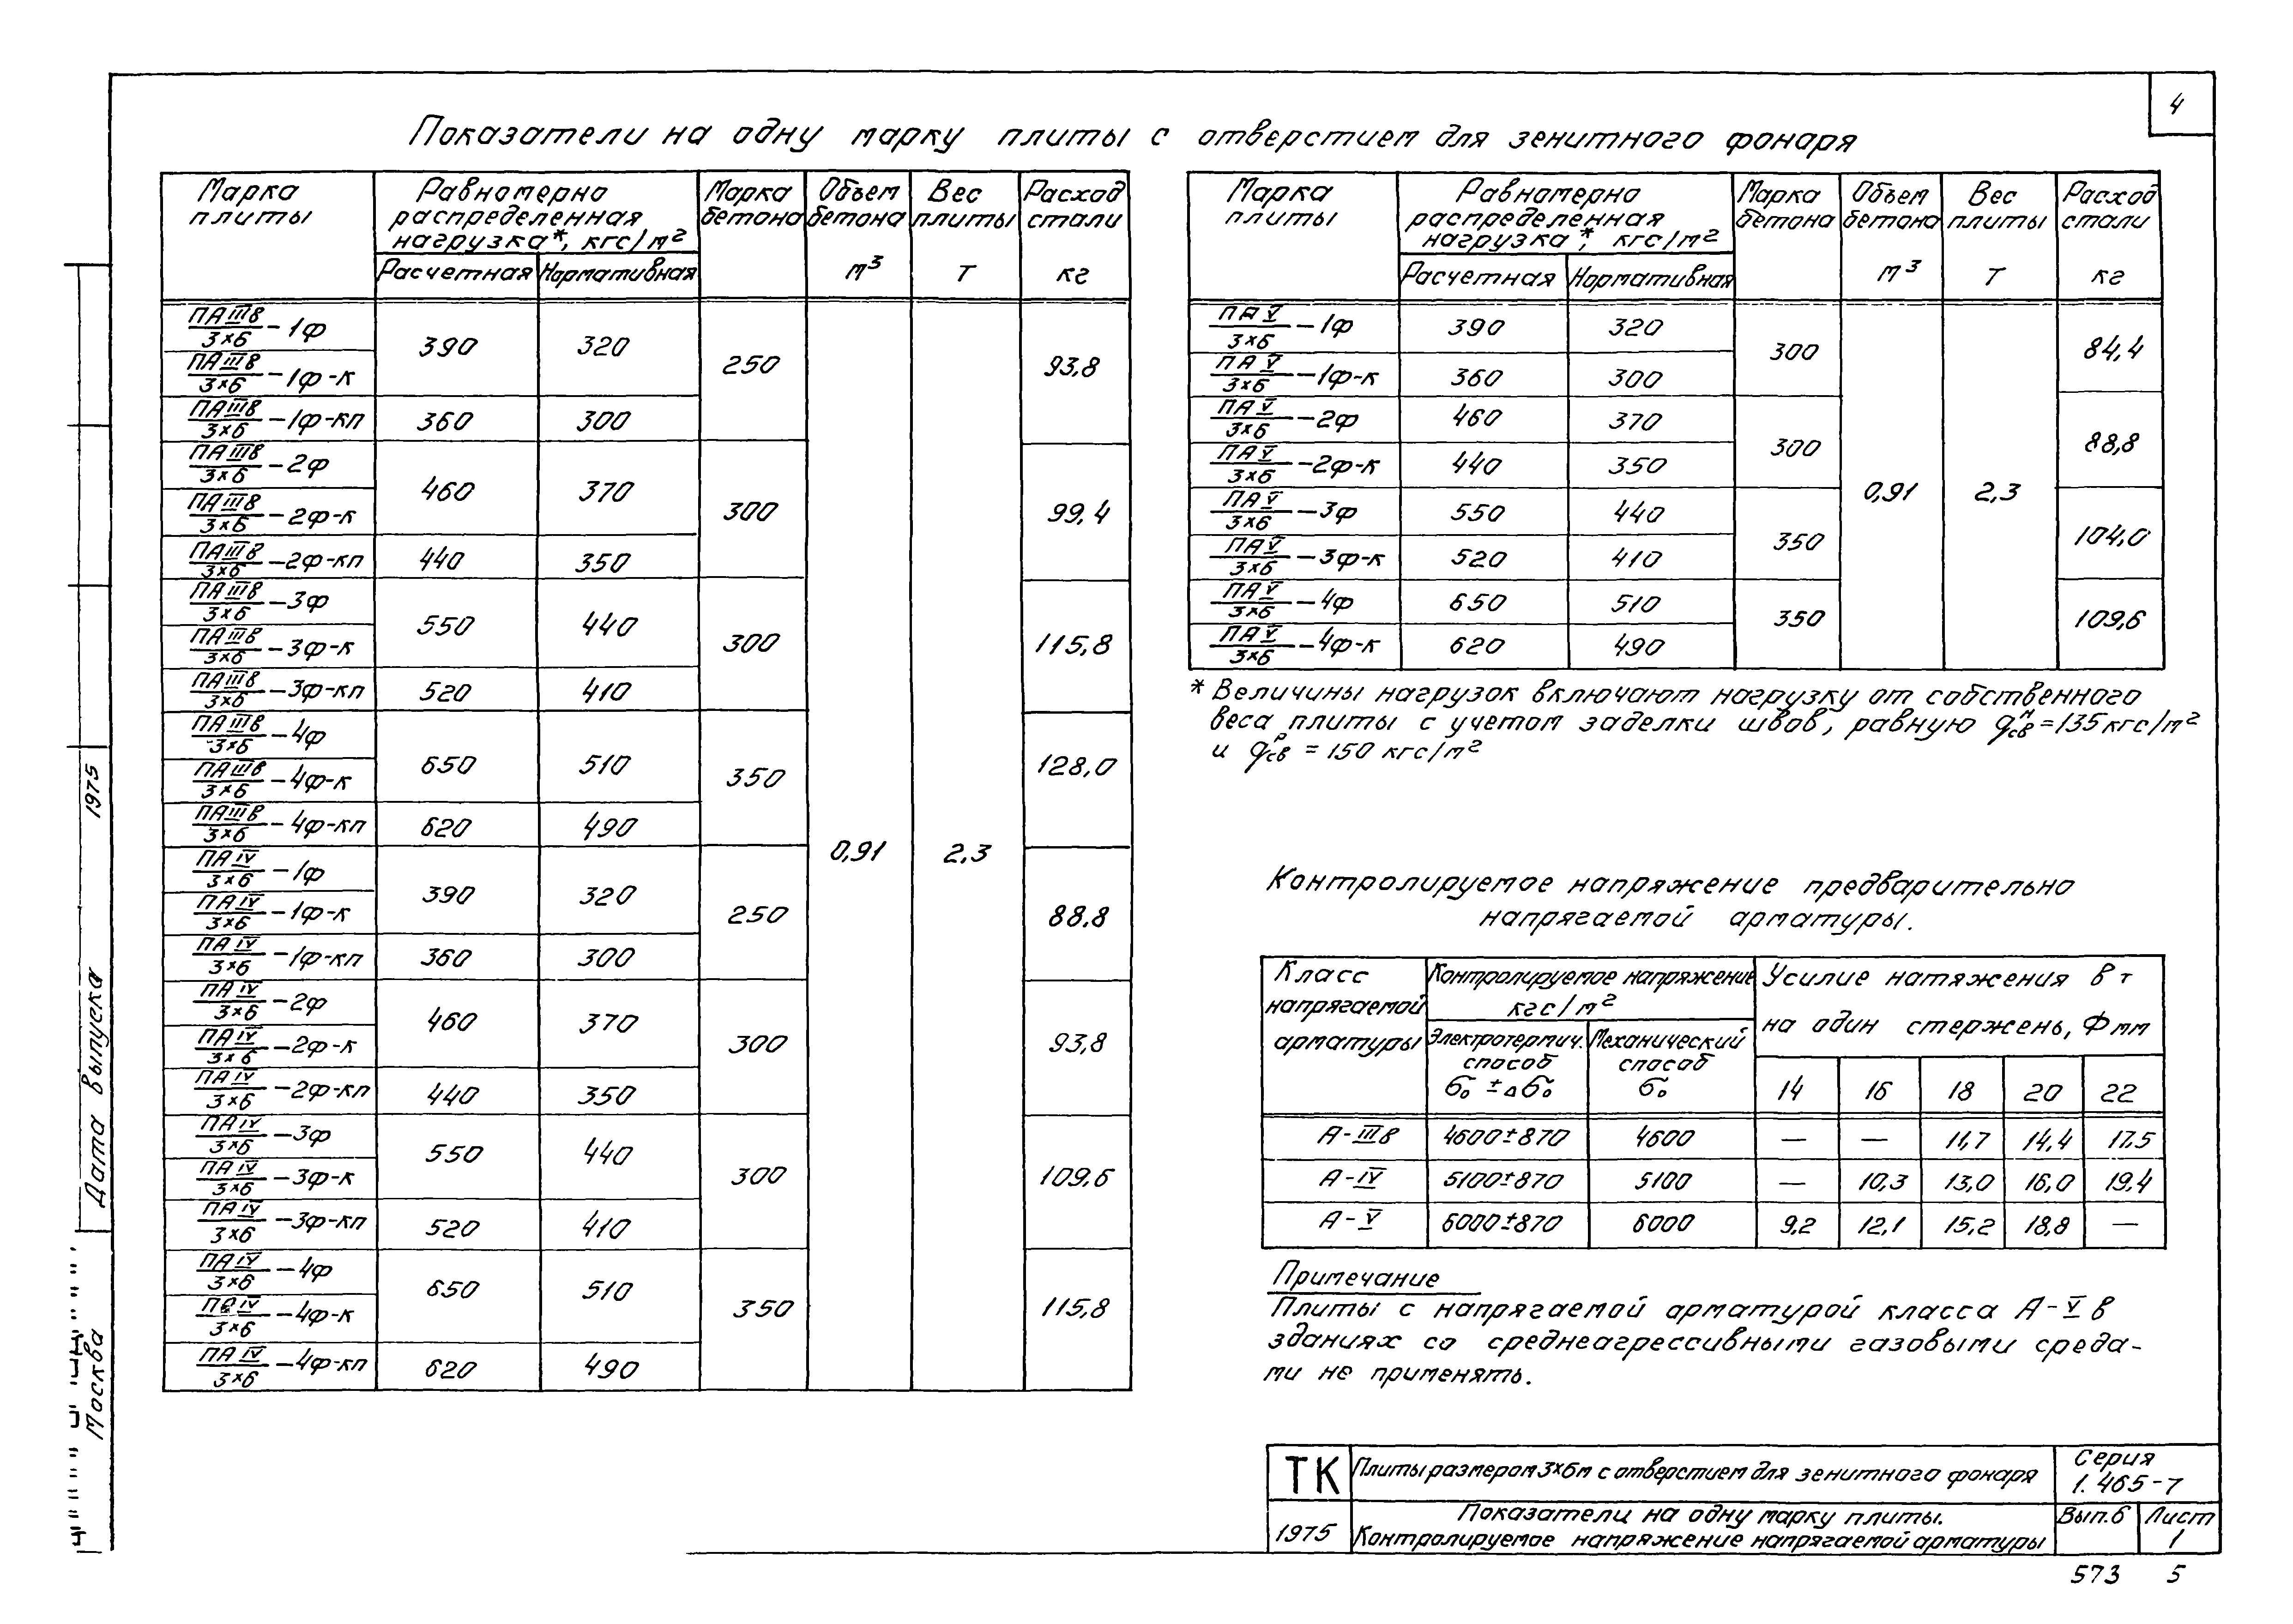 4
Показатели на одну марку плиты с отверстием для зенитного фонаря
Марка плиты | Равномерно распределенная нагрузка*, кгс/м² | Марка бетона | Объем бетона м³ | Вес плиты Т | Расход стали кг
Расчетная | Нормативная
ПАIIIв/3×6 –1ф | 390 | 320 | 250 | 0,91 | 2,3 | 93,8
ПАIIIв/3×6 –1ф-к
ПАIIIв/3×6 –1ф-кп | 360 | 300
ПАIIIв/3×6 –2ф | 460 | 370 | 300 | 99,4
ПАIIIв/3×6 –2ф-к
ПАIIIв/3×6 –2ф-кп | 440 | 350
ПАIIIв/3×6 –3ф | 550 | 440 | 300 | 115,8
ПАIIIв/3×6 –3ф-к
ПАIIIв/3×6 –3ф-кп | 520 | 410
ПАIIIв/3×6 –4ф | 650 | 510 | 350 | 128,0
ПАIIIв/3×6 –4ф-к
ПАIIIв/3×6 –4ф-кп | 620 | 490
ПАIV/3×6 –1ф | 390 | 320 | 250 | 88.8
ПАIV/3×6 –1ф-к
ПАIV/3×6 –1ф-кп | 360 | 300
ПАIV/3×6 –2ф | 460 | 370 | 300 | 93,8
ПАIV/3×6 –2ф-к
ПАIV/3×6 –2ф-кп | 440 | 350
ПАIV/3×6 –3ф | 550 | 440 | 300 | 109,6
ПАIV/3×6 –3ф-к
ПАIV/3×6 –3ф-кп | 520 | 410
ПАIV/3×6 –4ф | 650 | 510 | 350 | 115,8
ПАIV/3×6 –4ф-к
ПАIV/3×6 –4ф-кп | 620 | 490
Марка плиты | Равномерно распределенная нагрузка*, кгс/м² | Марка бетона | Объем бетона м³ | Вес плиты Т | Расход стали кг
Расчетная | Нормативная
ПАV/3×6 –1ф | 390 | 320 | 300 | 0,91 | 2,3 | 84,4
ПАV/3×6 –1ф-к | 360 | 300
ПАV/3×6 –2ф | 460 | 370 | 300 | 88,8
ПАV/3×6 –2ф-к | 440 | 350
ПАV/3×6 –3ф | 550 | 440 | 350 | 104,0
ПАV/3×6 –3ф-к | 520 | 410
ПАV/3×6 –4ф | 650 | 510 | 350 | 109,6
ПАV/3×6 –4ф-к | 620 | 490
* Величины нагрузок включают нагрузку от собственного
веса плиты с учетом заделки швов, равную qсвⁿ = 135 кгс/м²
и qсвᵖ = 150 кгс/м²
Контролируемое напряжение предварительно
напрягаемой арматуры.
Класс напрягаемой арматуры | Контролируемое напряжение кгс/м² | Усилие натяжения в т на один стержень, Ф мм
Электротермич. способ σ₀ ± Δσ₀ | Механический способ σ₀ | 14 | 16 | 18 | 20 | 22
А-IIIв | 4600±870 | 4600 | — | — | 11,7 | 14,4 | 17,5
А-IV | 5100±870 | 5100 | — | 10,3 | 13,0 | 16,0 | 19,4
А-V | 6000±870 | 6000 | 9,2 | 12,1 | 15,2 | 18,8 | —
Примечание
Плиты с напрягаемой арматурой класса А-V в
зданиях со среднеагрессивными газовыми среда-
ми не применять.
ТК | Плиты размером 3×6м с отверстием для зенитного фонаря | Серия 1.465-7
1975 | Показатели на одну марку плиты. Контролируемое напряжение напрягаемой арматуры | Вып.6 | Лист 1
573 5
Москва
Дата выпуска 1975